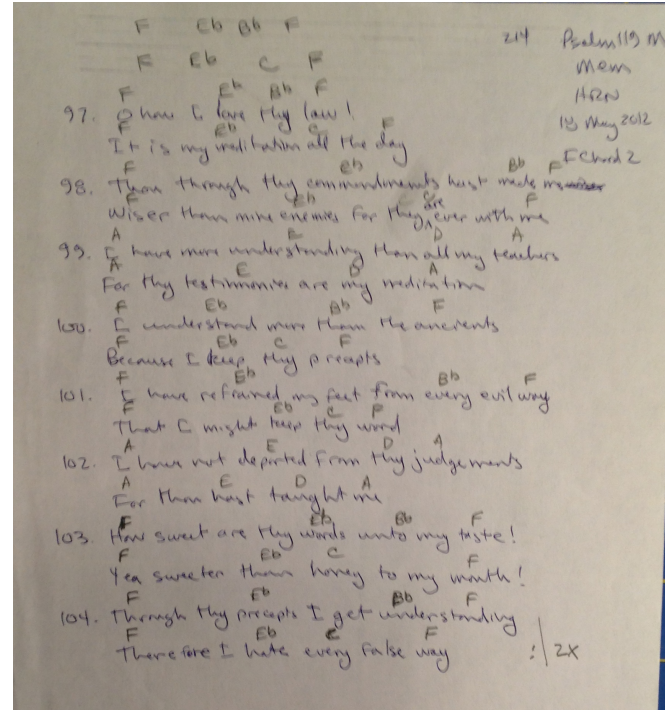 F Eb Bb F
214 Psalm 119 M
F Eb C F
Mem
F Eb Bb F
HRN
97. O how I love thy law!
18 May 2012
F Eb C F
It is my meditation all the day
F Chord 2
F Eb Bb F
98. Thou through thy commandments hast made me
F Eb C F
Wiser than mine enemies for they are ever with me
A E D A
99. I have more understanding than all my teachers
A E D A
For thy testimonies are my meditation
F Eb Bb F
100. I understand more than the ancients
F Eb C F
Because I keep thy precepts
F Eb Bb F
101. I have refrained my feet from every evil way
F Eb C F
That I might keep thy word
A E D A
102. I have not departed from thy judgements
A E D A
For thou hast taught me
F Eb Bb F
103. How sweet are thy words unto my taste!
F Eb C F
Yea sweeter than honey to my mouth!
F Eb Bb F
104. Through thy precepts I get understanding
F Eb C F
Therefore I hate every false way :| 2X